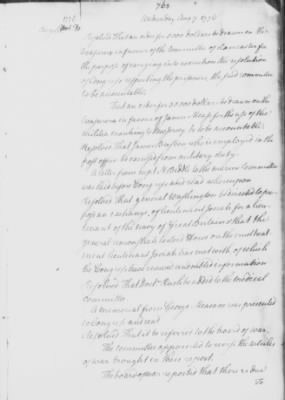 763
1776
Wednesday Aug 7. 1776
Resolved That an order for 5000 dollars be drawn on the
treasurer in favour of the committee of Lancaster for
the purpose of carrying into execution the resolution
of Congress respecting the prisoners, the said committee
to be accountable.
That an order for 30000 dollars be drawn on the
treasurer in favour of James Mease for the use of the
militia marching to New Jersey he to be accountable.
Resolved That James Bryson who is employed in the
post office be excused from military duty.
A letter from capt N. to the marine Committee
was laid before Congress and read whereupon
Resolved that general Washington be directed to pro-
pose an exchange of lieutenant Josiah for a lieu-
tenant of the navy of Great Britain & that the
general remonstrate to lord Howe on the cruel treat-
ment lieutenant Josiah has met with of which
the Congress have received undoubted information
Resolved That Doct Rush be added to the medical
committee.
A memorial from George was presented
to Congress and read
Resolved That it be referred to the board of war.
The committee appointed to revise the articles
of war brought in their report.
The board of war reported that there is due
To